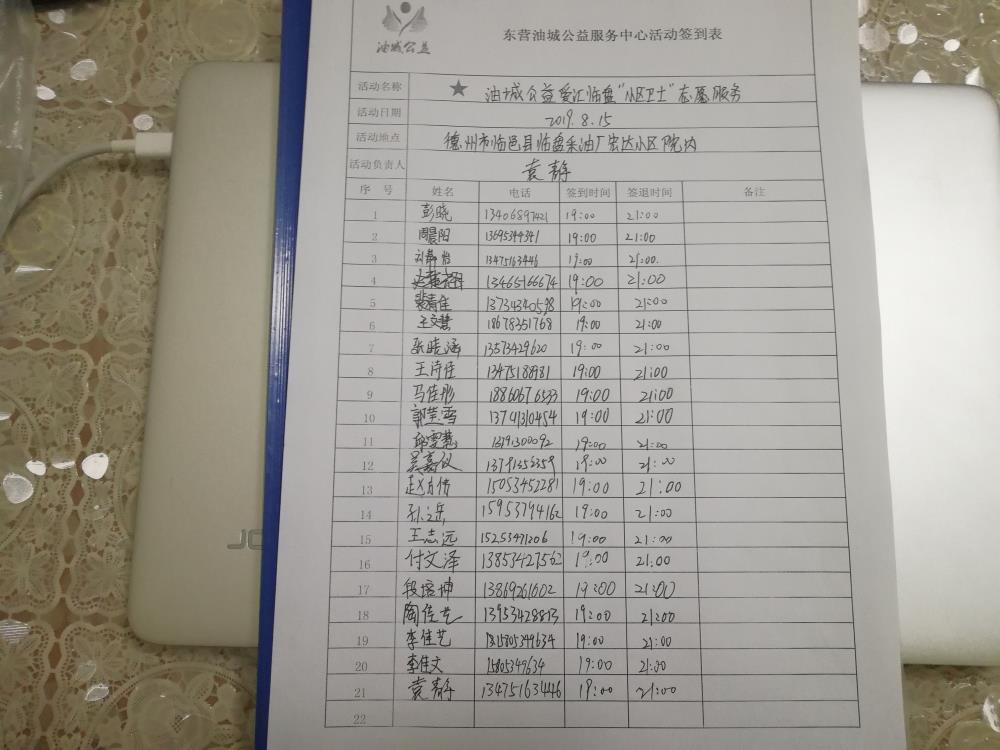 油城公益
东营油城公益服务中心活动签到表
活动名称 ★ 油城公益爱汇临盘“小区卫士”志愿服务
活动日期 2019.8.15
活动地点 德州市临邑县临盘采油厂宏达小区院内
活动负责人 袁静
序 号 姓名 电话 签到时间 签退时间 备注
1 彭晓 13406897421 19:00 21:00
2 周晨阳 13695344341 19:00 21:00
3 刘静怡 13475163446 19:00 21:00.
4 13465166674 19:00 21:00
5 裴青佳 13734340598 19:00 21:00
6 王文慧 18678351768 19:00 21:00
7 张晓涵 13573429620 19:00 21:00
8 王诗佳 13475188981 19:00 21:00
9 马佳彤 18860676533 19:00 21:00
10 郭慧雪 13741310454 19:00 21:00
11 邱雪慧 19:00 21:00
12 吴嘉仪 13791356359 19:00 21:00
13 赵方伟 15053452281 19:00 21:00
14 孙之岳 15953794162 19:00 21:00
15 王志远 15253471206 19:00 21:00
16 付文泽 13853427562 19:00 21:00
17 段培坤 13869261602 19:00 21:00
18 陶佳艺 13953428813 19:00 21:00
19 李佳艺 15805349634 19:00 21:00
20 李佳文 15805349634 19:00 21:00
21 袁静 13475163446 19:00 21:00
22